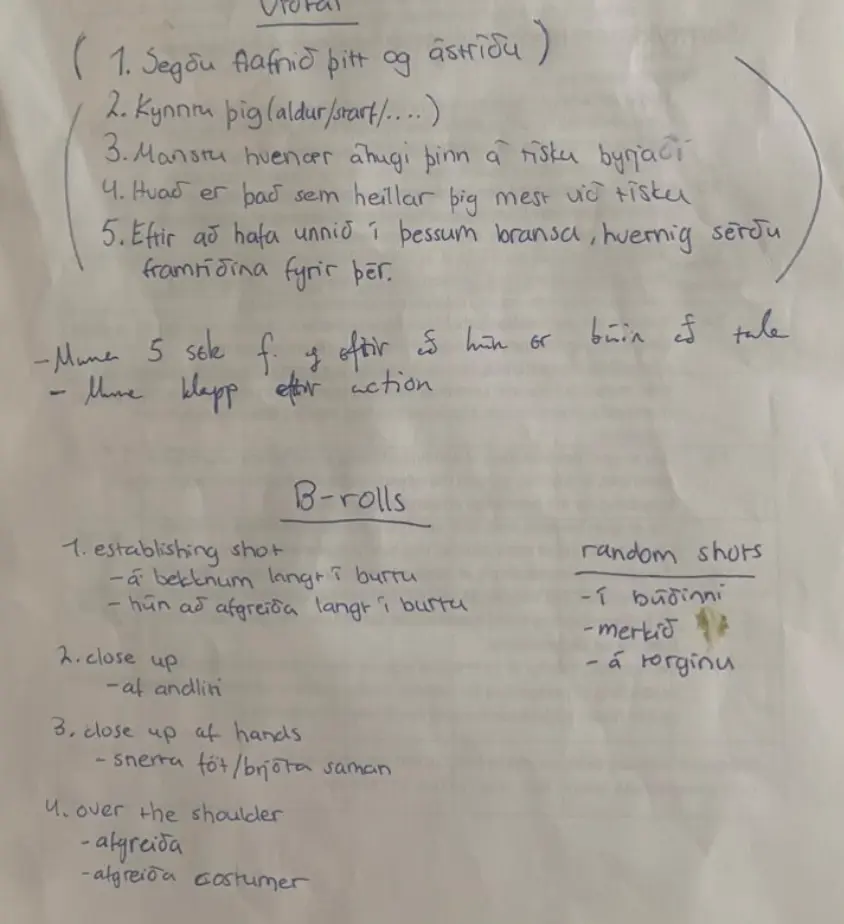 Viðtal
( 1. Segðu flafnið þitt og ástríðu )
2. Kynntu þig (aldur/starf/....)
3. Manstu hvenær áhugi þinn á tísku byrjaði
4. Hvað er það sem heillar þig mest við tísku
5. Eftir að hafa unnið í þessum bransa, hvernig sérðu
framtíðina fyrir þér.
- Muna 5 sek f. og eftir að hún er búin að tala
- Muna klapp eftir action
B-rolls
1. establishing shot
- á bekknum langt í burtu
- hún að afgreiða langt í burtu
2. close up
- af andliti
3. close up af hands
- snerta föt/brjóta saman
4. over the shoulder
- afgreiða
- afgreiða costumer
random shots
- í búðinni
- merkið
- á torginu